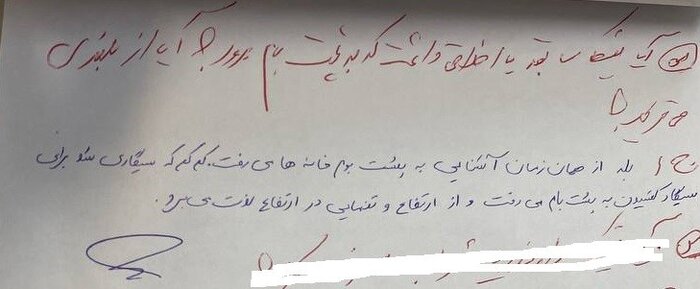 س) آیا نیکا سابقه یا اخلاقی داشت که به پشت بام برود؟ آیا از بلندی
می‌ترسید؟
ج) بله از همان زمان آشنایی به پشت بوم خانه های می رفت. کم کم که سیگاری شد برای
سیگار کشیدن به پشت بام می رفت و از ارتفاع و تنهایی در ارتفاع لذت می برد.